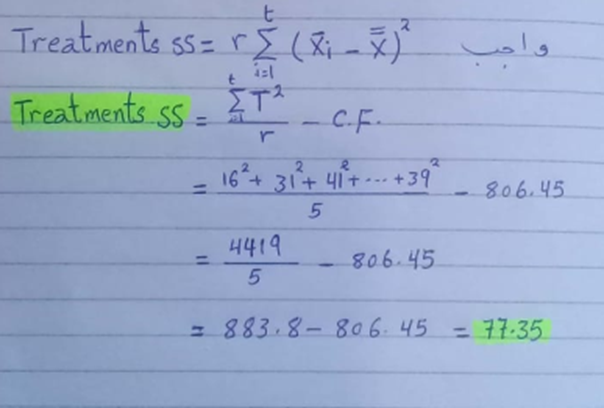 Treatments SS = r Σ_{i=1}^{t} (x̄i − x̿)² واجب
Treatments SS = Σ_{i=1}^{t} T² / r − C.F.
= 16² + 31² + 41² + ... + 39² / 5 − 806.45
= 4419 / 5 − 806.45
= 883.8 − 806.45 = 77.35